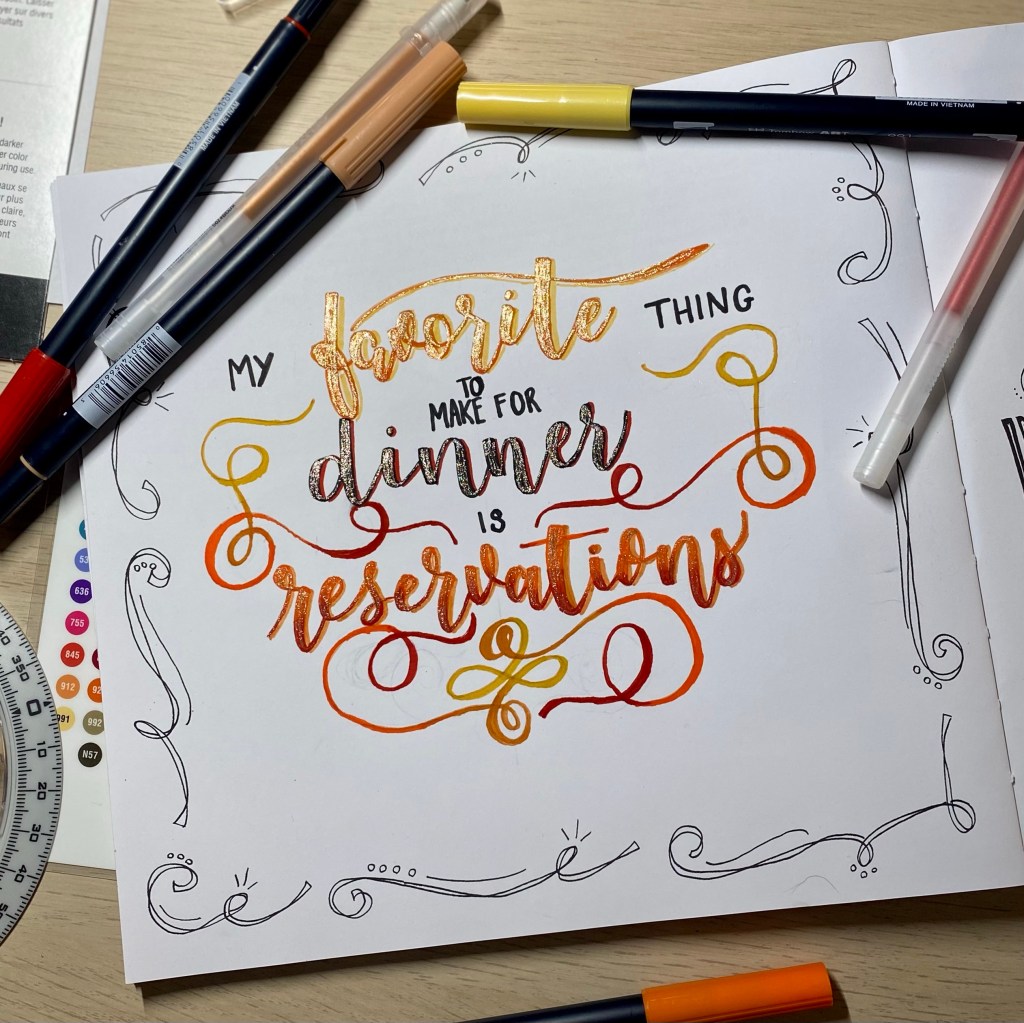 MY favorite THING
TO
MAKE FOR
dinner
IS
reservations
MADE IN VIETNAM
MADE IN VIETNAM
darker
er color
uring use.
aux se
r plus
claire,
eurs
ont
yer sur divers
sultats
636
755
845
912
991
992
N57
350
0
10
20
30
40